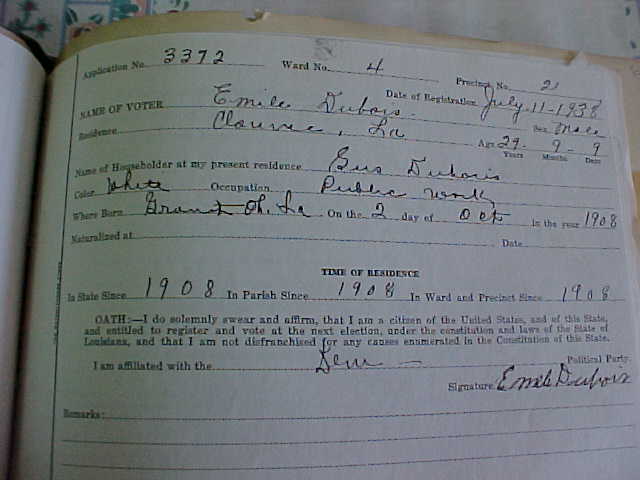 Application No. 3372 Ward No. 4 Precinct No. 2
Date of Registration July-11-1938
NAME OF VOTER Emile Dubois.
Residence Clarence, La Sex male
Age 29 - 9 - 9
Years Months Days
Name of Householder at my present residence Gus Dubois
Color White Occupation Public Work
Where Born Grant Ph. La On the 2 day of Oct in the year 1908
Naturalized at Date
TIME OF RESIDENCE
In State Since 1908 In Parish Since 1908 In Ward and Precinct Since 1908
OATH:—I do solemnly swear and affirm, that I am a citizen of the United States, and of this State,
and entitled to register and vote at the next election, under the constitution and laws of the State of
Louisiana, and that I am not disfranchised for any causes enumerated in the Constitution of this State.
I am affiliated with the Dem — Political Party.
Signature Emile Dubois
Remarks: